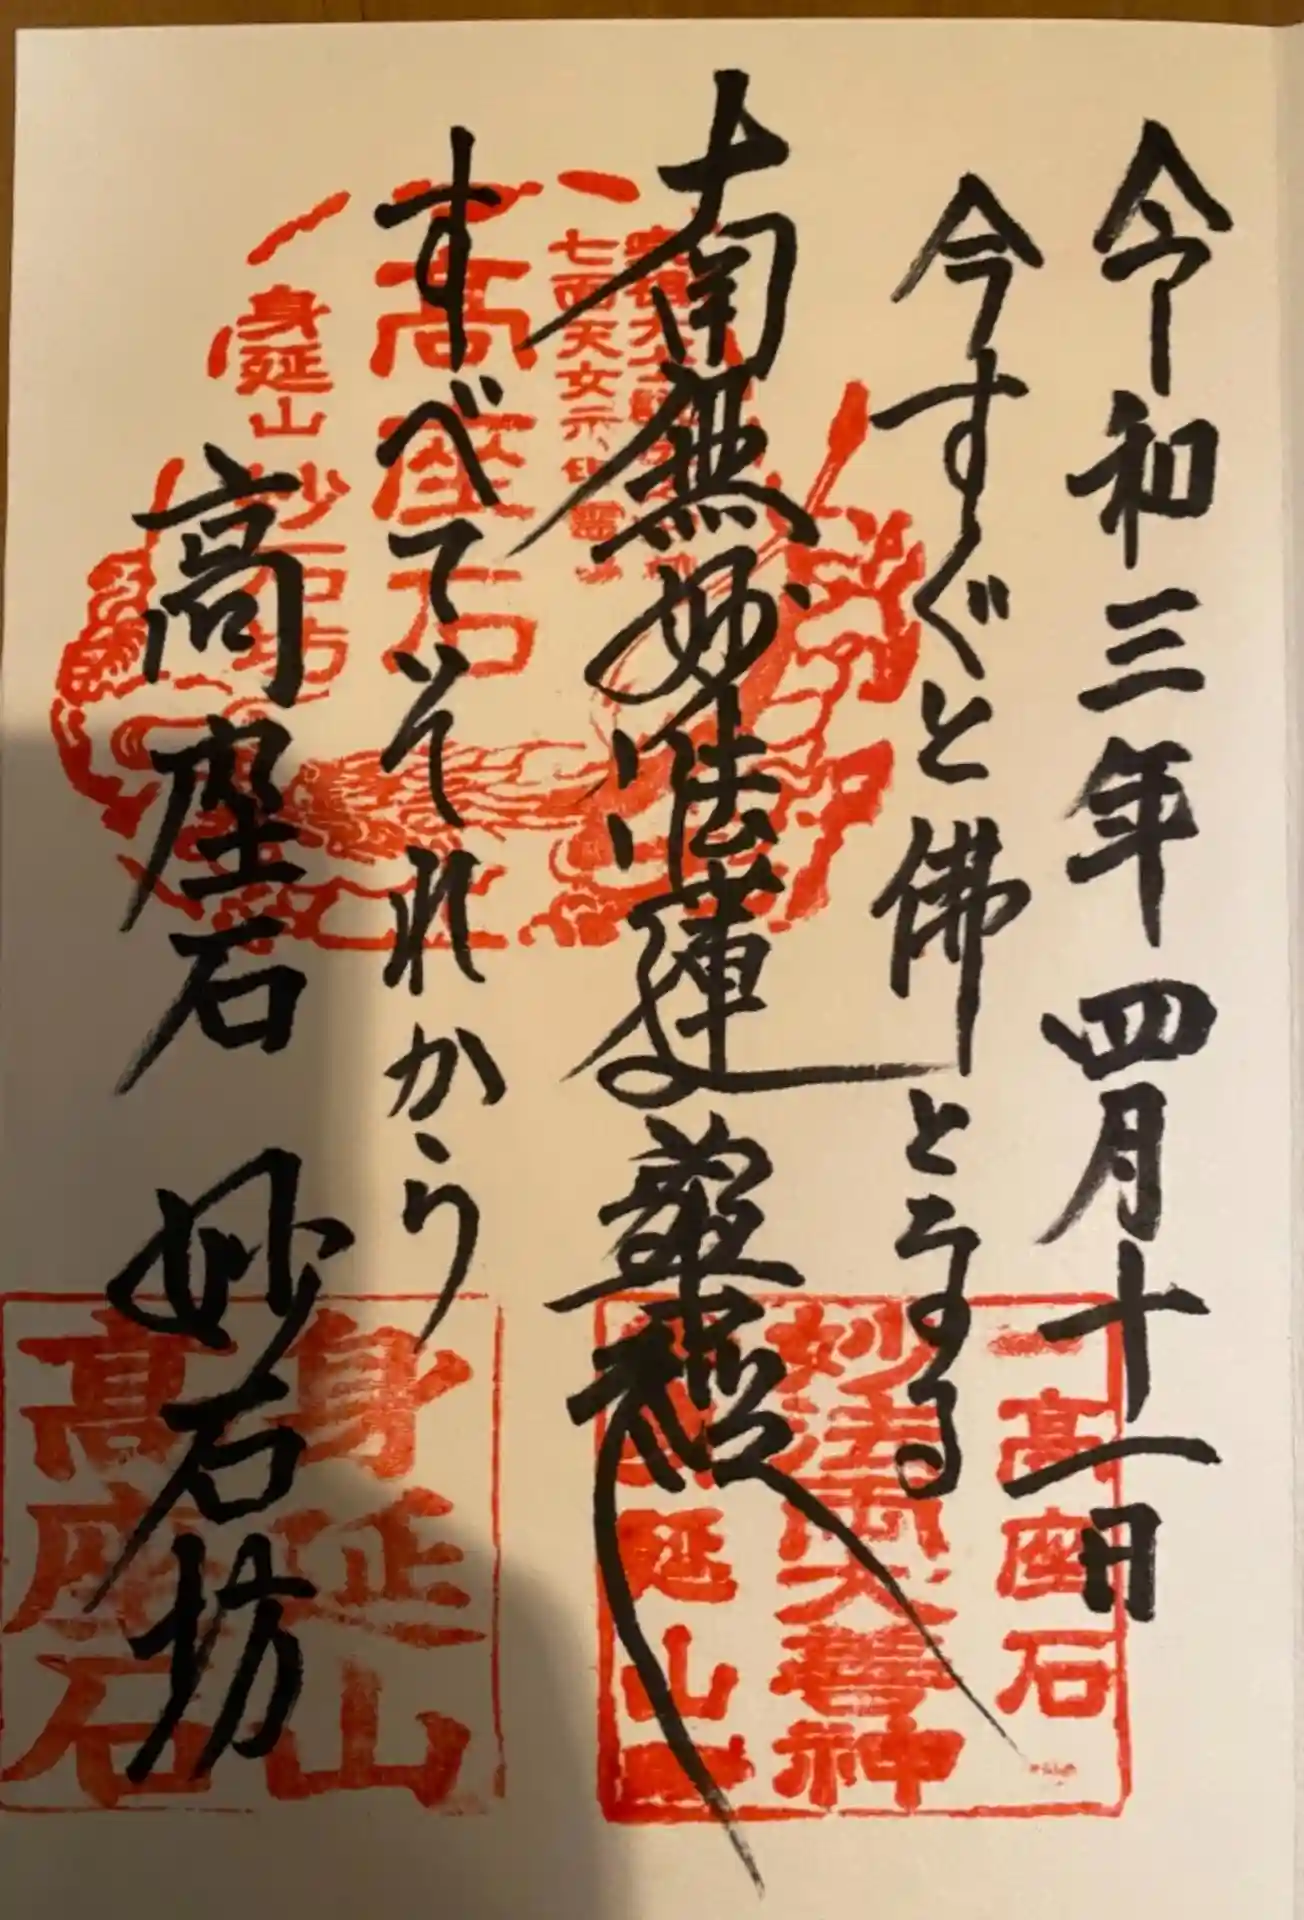 令和三年四月十一日
今すぐと佛となる
南無妙法蓮華経
すべてはそれから
高座石 妙石坊
七面天女示現霊
高座石
身延山
妙石坊
一高座石
妙法両大善神
延山
身延山
高座石